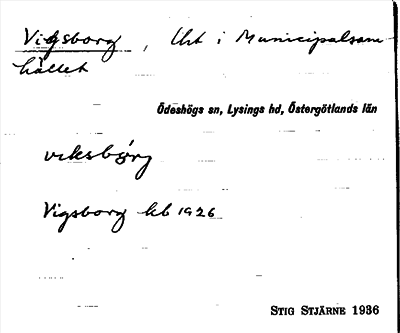 Vigsborg, Lht i Municipalsam-
hället
Ödeshögs sn, Lysings hd, Östergötlands län
veksbørg
Vigsborg kb 1926
STIG STJÄRNE 1936